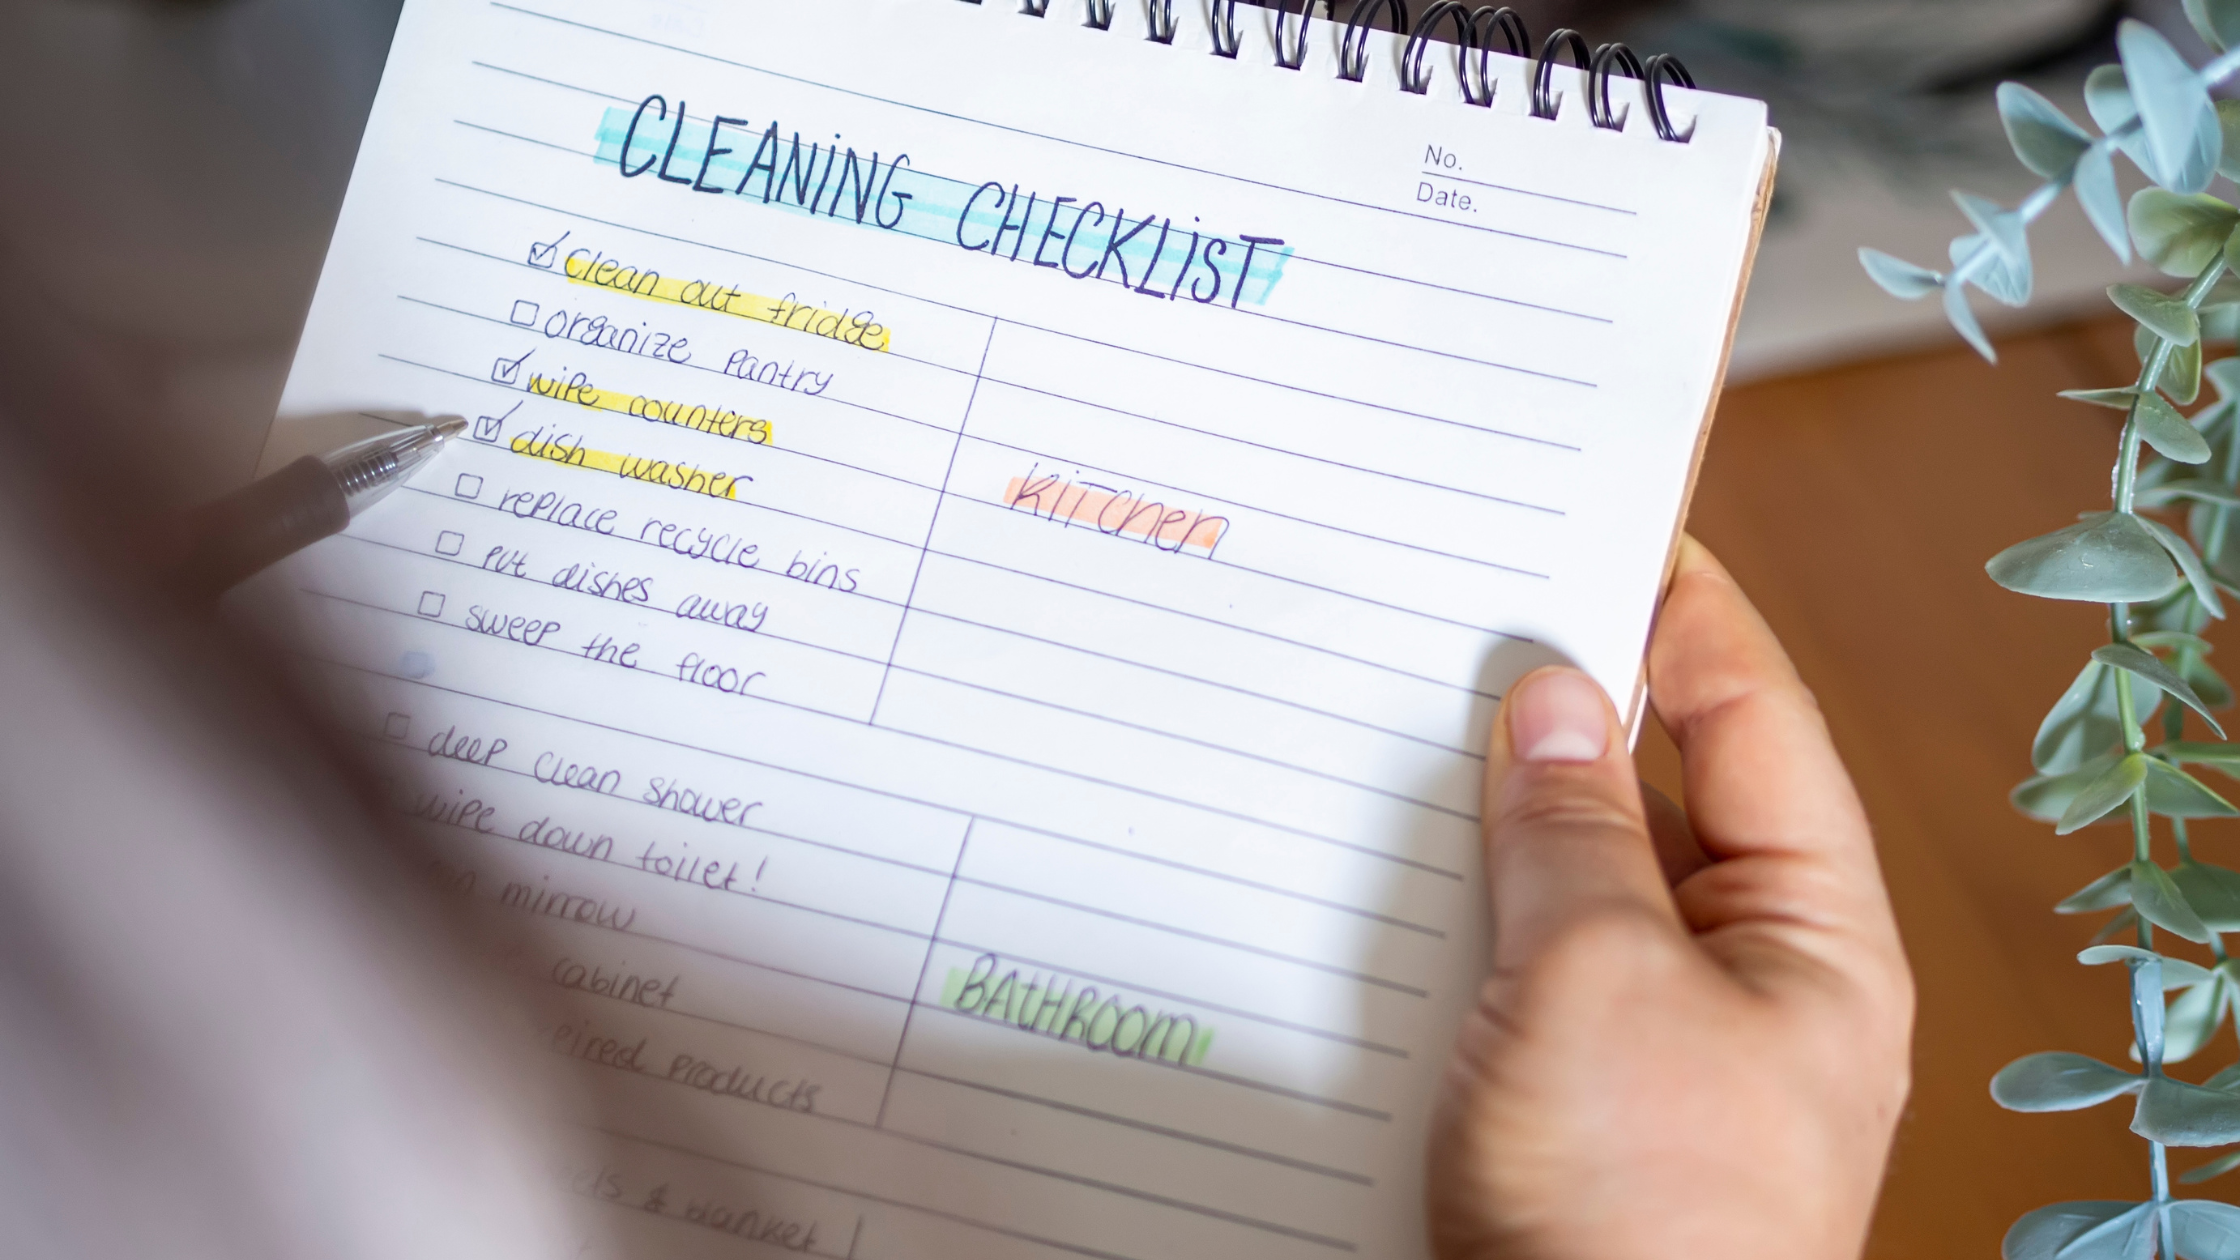 No.
Date.
CLEANING CHECKLIST
clean out fridge
organize pantry
wipe counters
dish washer
replace recycle bins
put dishes away
sweep the floor
KITCHEN
deep clean shower
wipe down toilet!
mirrow
cabinet
products
BATHROOM
& blanket